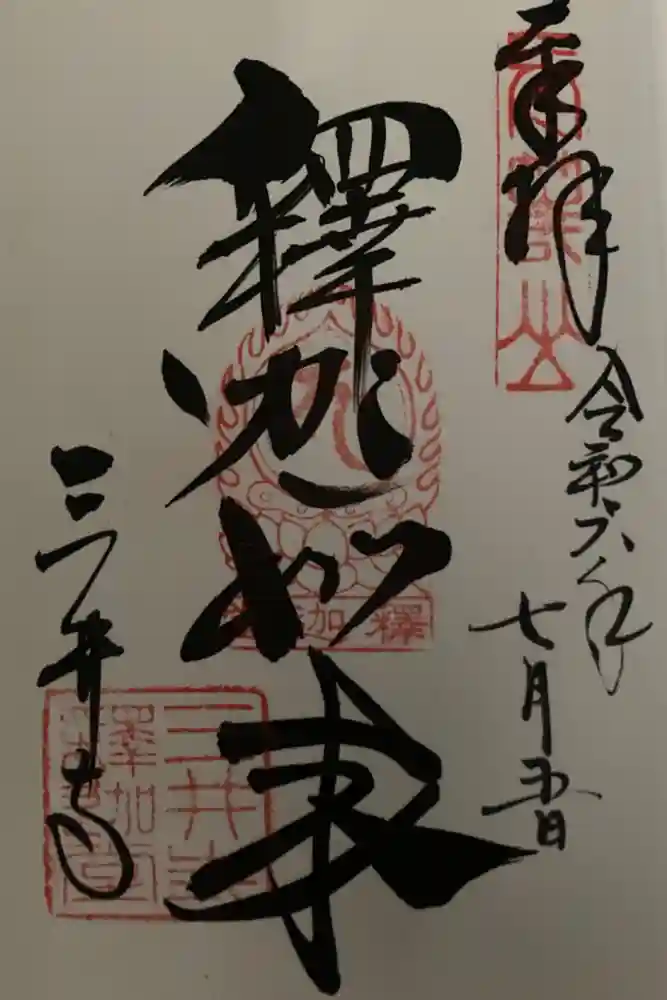 奉拝
令和六年
七月五日
釋迦如来
三井寺
長等山
釋迦
三井寺
釋迦